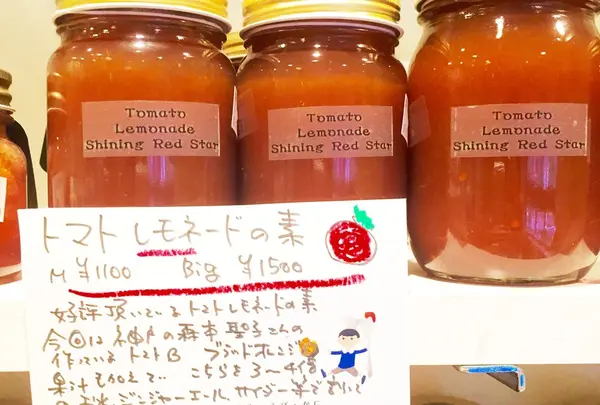 Tomato
Lemonade
Shining Red Star
Tomato
Lemonade
Shining Red Star
Tomato
Lemonade
Shining Red Star
トマトレモネードの素
M ¥1100 Big ¥1500
好評頂いているトマトレモネードの素
今回は神戸の森本聖子さんの
作っているトマトB ブラッドオレンジ
果汁も加えて こちらを3〜4倍
ジンジャーエール、サイダー等で